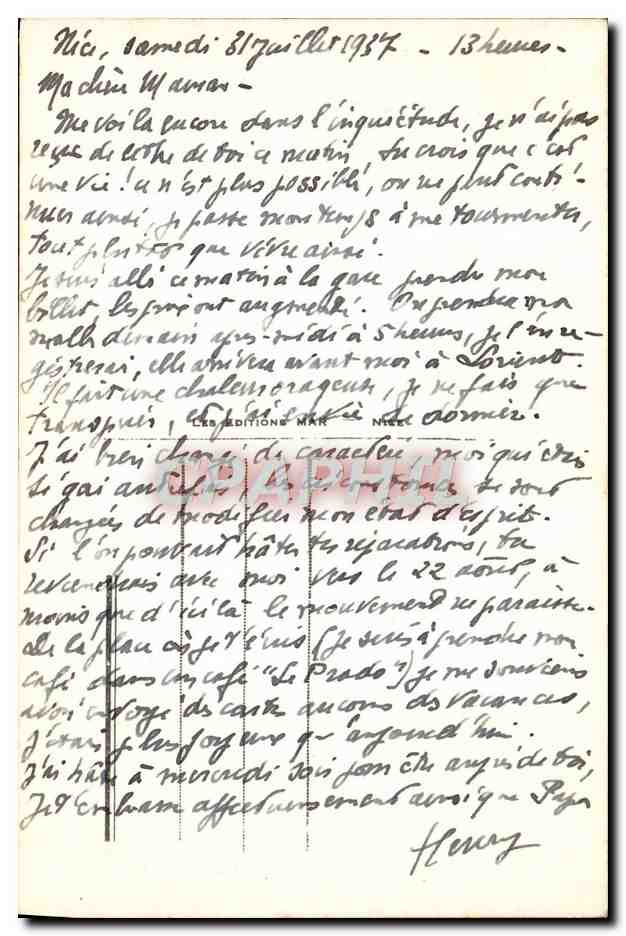 Nice, samedi 31 Juillet 1937 - 13 heures -
Ma chère Maman -
Me voilà encore dans l'inquiétude, je n'ai pas
reçu de lettre de toi ce matin, tu crois que c'est
une vie! ce n'est plus possible, on ne peut conti-
nuer ainsi, je passe mon temps à me tourmenter,
tout plutôt que vivre ainsi.
Je suis allé ce matin à la gare prendre mon
billet, les prix ont augmenté. On prendra ma
malle demain après-midi à 5 heures, je l'enre-
gistrerai, elle arrivera avant moi à Lorient.
Il fait une chaleur orageuse, je ne fais que
transpirer, et j'ai envie de dormir.
LES EDITIONS MAR NICE
J'ai bien changé de caractère moi qui étais
si gai autrefois, les circonstances se sont
chargées de modifier mon état d'esprit.
CPAPHIL
Si l'on pouvait hâter tes réparations, tu
reviendrais avec moi vers le 22 août, à
moins que d'ici là le mouvement ne paraisse.
De la place où je t'écris (je suis à prendre mon
café dans un café "Le Prado") je me souviens
avoir envoyé des cartes au cours des vacances,
j'étais plus joyeuse qu'aujourd'hui.
J'ai hâte à mercredi soir pour être auprès de toi,
Je t'embrasse affectueusement ainsi que Papa
Henry